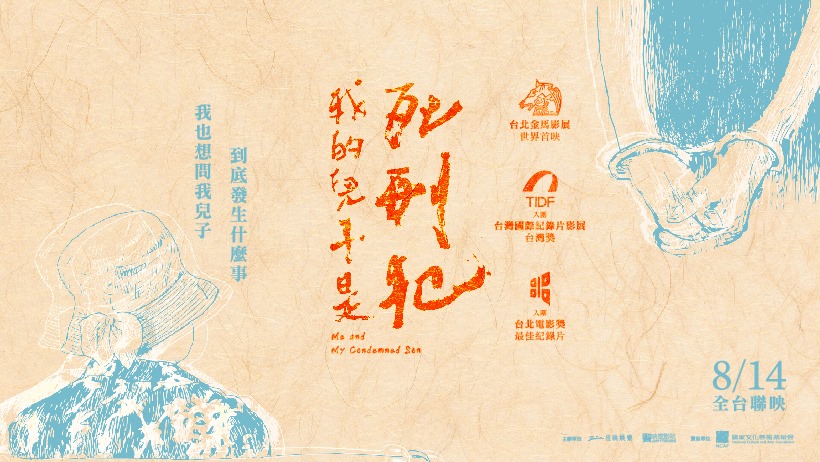 我也想問我兒子
到底發生什麼事
我的兒子是
死刑犯
Me and
My Condemned Son
台北金馬影展
世界首映
TIDF
入圍
台灣國際紀錄片影展
台灣獎
入圍
台北電影獎
最佳紀錄片
8/14
全台聯映
NCAF
國家文化藝術基金會